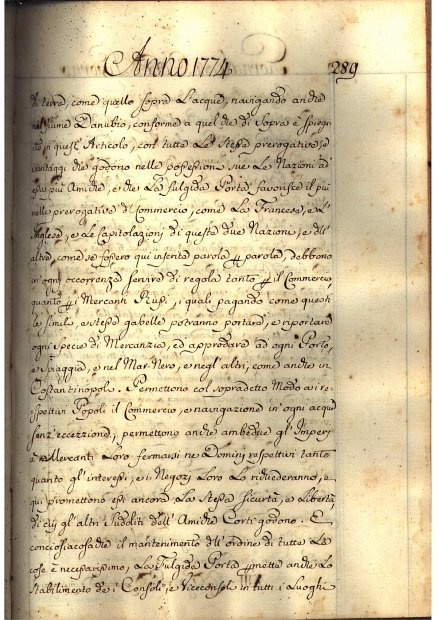 Anno 1774
289
di terra, come quello sopra l'acque, navigando anche
nel fiume Danubio, conforme a quel che di sopra è spiegato
in quest'Articolo, con tutte le stesse prerogative, e
vantaggi che godono nelle possessioni sue le Nazioni
più Amiche, e che la fulgida Porta favorisce il più
nelle prerogative di Commercio, come la Francese, e l'
Inglese, e le Capitolazioni di queste due Nazioni, e dell'
altre, come se fossero qui inserite parola per parola, debbono
in ogni occorrenza servire di regola tanto per il Commercio,
quanto per i Mercanti Russi, i quali pagando come questi
le simili, e stesse gabelle potranno portare, e riportare
ogni specie di Mercanzia, ed approdare ad ogni Porto,
e spiaggia, e nel Mar-Nero, e negl'altri, come anche in
Costantinopoli. Permettono col sopradetto Modo ai re-
spettivi Popoli il Commercio, e navigazione in ogni acqua
senz'eccezzione, permettono anche ambedue gl'Imperj
a Mercanti Loro fermarsi ne Dominj respettivi tanto
quanto gl'interessi, e i Negozj Loro lo richiederanno, e
qui promettono essi ancora la stessa sicurtà, e Libertà,
di cui gl'altri sudditi dell'Amiche Corti godono. E
conciosiacosache il mantenimento dell'ordine di tutte le
cose è necessarissimo, la Fulgida Porta permette anche lo
stabilimento de' i Consoli, e Viceconsoli in tutti i Luoghi